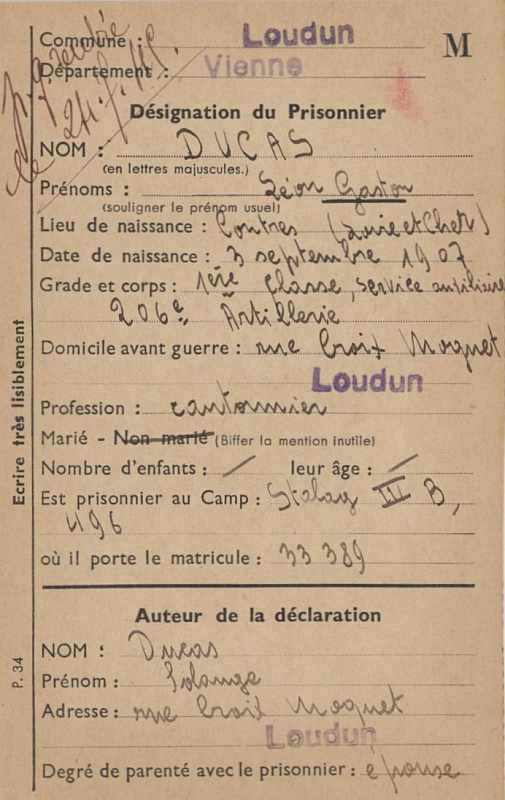 Commune : Loudun
M
Département : Vienne
le 24.7.
Désignation du Prisonnier
NOM : DUCAS
(en lettres majuscules.)
Prénoms : Léon Gaston
(souligner le prénom usuel)
Lieu de naissance : Contres (Loir et Cher)
Date de naissance : 3 septembre 1907
Grade et corps : 1ère classe, service auxiliaire
206e Artillerie
Domicile avant guerre : rue Croix Moquet
Loudun
Profession : cantonnier
Marié - Non marié (Biffer la mention inutile)
Nombre d'enfants : / leur âge : /
Est prisonnier au Camp : Stalag III B,
496
où il porte le matricule : 33 389
Auteur de la déclaration
NOM : Ducas
Prénom : Solange
Adresse : rue Croix Moquet
Loudun
Degré de parenté avec le prisonnier : épouse
Ecrire très lisiblement
P. 34